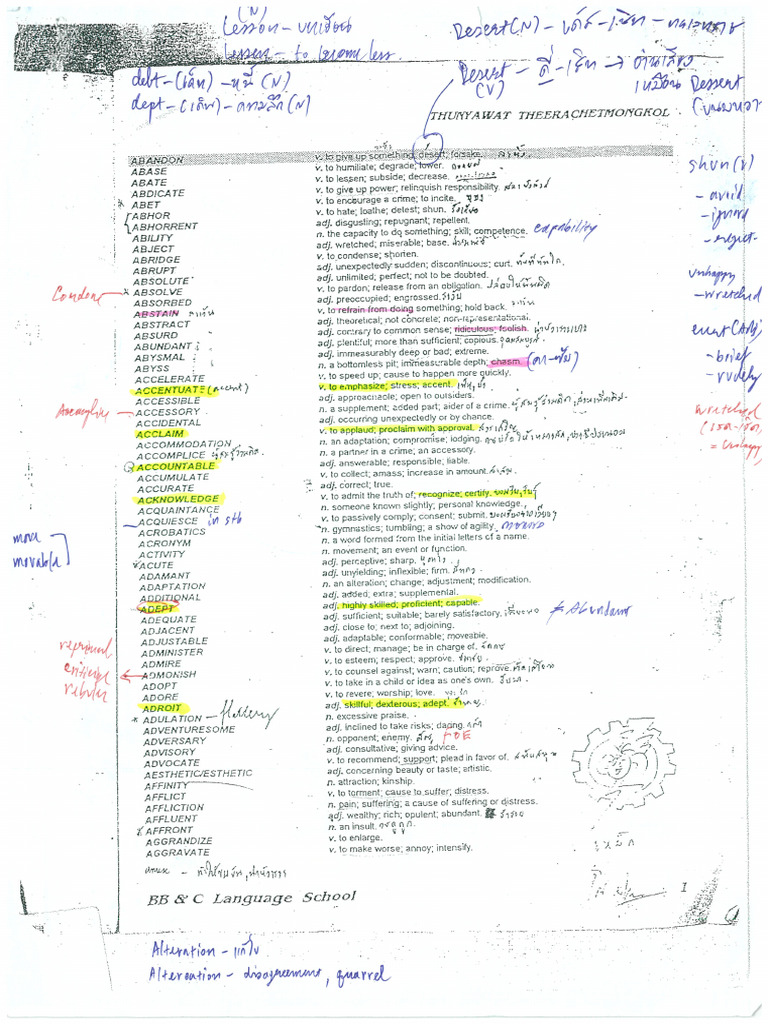 (N)
Lesson - บทเรียน
Lessen - to become less.
debt - (เด็บ) - หนี้ (N)
dept - (เด็พ) - ความลึก (N)
THUNYAWAT THEERACHETMONGKOL
ABANDON v. to give up something; desert; forsake.
ABASE v. to humiliate; degrade; lower.
ABATE v. to lessen; subside; decrease.
ABDICATE v. to give up power; relinquish responsibility.
ABET v. to encourage a crime; to incite.
ABHOR v. to hate; loathe; detest; shun. รังเกียจ
ABHORRENT adj. disgusting; repugnant; repellent.
ABILITY n. the capacity to do something; skill; competence. capability
ABJECT adj. wretched; miserable; base.
ABRIDGE v. to condense; shorten.
ABRUPT adj. unexpectedly sudden; discontinuous; curt. ทันทีทันใด
ABSOLUTE adj. unlimited; perfect; not to be doubted.
ABSOLVE v. to pardon; release from an obligation.
ABSORBED adj. preoccupied; engrossed.
ABSTAIN v. to refrain from doing something; hold back.
ABSTRACT adj. theoretical; not concrete; non-representational.
ABSURD adj. contrary to common sense; ridiculous, foolish.
ABUNDANT adj. plentiful; more than sufficient; copious.
ABYSMAL adj. immeasurably deep or bad; extreme.
ABYSS n. a bottomless pit; immeasurable depth; chasm.
ACCELERATE v. to speed up; cause to happen more quickly.
ACCENTUATE (accent) v. to emphasize; stress; accent.
ACCESSIBLE adj. approachable; open to outsiders.
ACCESSORY n. a supplement; added part; aider of a crime.
ACCIDENTAL adj. occurring unexpectedly or by chance.
ACCLAIM v. to applaud; proclaim with approval. สรรเสริญ
ACCOMMODATION n. an adaptation; compromise; lodging.
ACCOMPLICE n. a partner in a crime; an accessory.
ACCOUNTABLE adj. answerable; responsible; liable.
ACCUMULATE v. to collect; amass; increase in amount. สะสม
ACCURATE adj. correct; true.
ACKNOWLEDGE v. to admit the truth of; recognize; certify.
ACQUAINTANCE n. someone known slightly; personal knowledge.
ACQUIESCE in sth v. to passively comply; consent; submit.
ACROBATICS n. gymnastics; tumbling; a show of agility.
ACRONYM n. a word formed from the initial letters of a name.
ACTIVITY n. movement; an event or function.
ACUTE adj. perceptive; sharp.
ADAMANT adj. unyielding; inflexible; firm.
ADAPTATION n. an alteration; change; adjustment; modification.
ADDITIONAL adj. added; extra; supplemental.
ADEPT adj. highly skilled; proficient; capable.
ADEQUATE adj. sufficient; suitable; barely satisfactory. เพียงพอ ≠ Abundant
ADJACENT adj. close to; next to; adjoining.
ADJUSTABLE adj. adaptable; conformable; moveable.
ADMINISTER v. to direct; manage; be in charge of. จัดการ
ADMIRE v. to esteem; respect; approve. ชมเชย
ADMONISH v. to counsel against; warn; caution; reprove
ADOPT v. to take in a child or idea as one's own.
ADORE v. to revere; worship; love.
ADROIT adj. skillful; dexterous; adept. ชำนาญ
ADULATION - flattery n. excessive praise.
ADVENTURESOME adj. inclined to take risks; daring. กล้า
ADVERSARY n. opponent; enemy. ศัตรู FOE
ADVISORY adj. consultative; giving advice.
ADVOCATE v. to recommend; support; plead in favor of. สนับสนุน
AESTHETIC/ESTHETIC adj. concerning beauty or taste; artistic.
AFFINITY n. attraction; kinship.
AFFLICT v. to torment; cause to suffer; distress.
AFFLICTION n. pain; suffering; a cause of suffering or distress.
AFFLUENT adj. wealthy; rich; opulent; abundant. ร่ำรวย
AFFRONT n. an insult. การดูถูก
AGGRANDIZE v. to enlarge.
AGGRAVATE v. to make worse; annoy; intensify.
BB & C Language School
1
Alteration - แก้ไข
Altercation - disagreement, quarrel
Desert (N)
Desert
(V)
Dessert
shun (V)
- avoid
- ignore
- reject
unhappy
- wretched
curt (Adj)
- brief
- rudely
wretched
= unhappy
Condone
Accomplice
move
movable
reprimand
criticize
rebuke